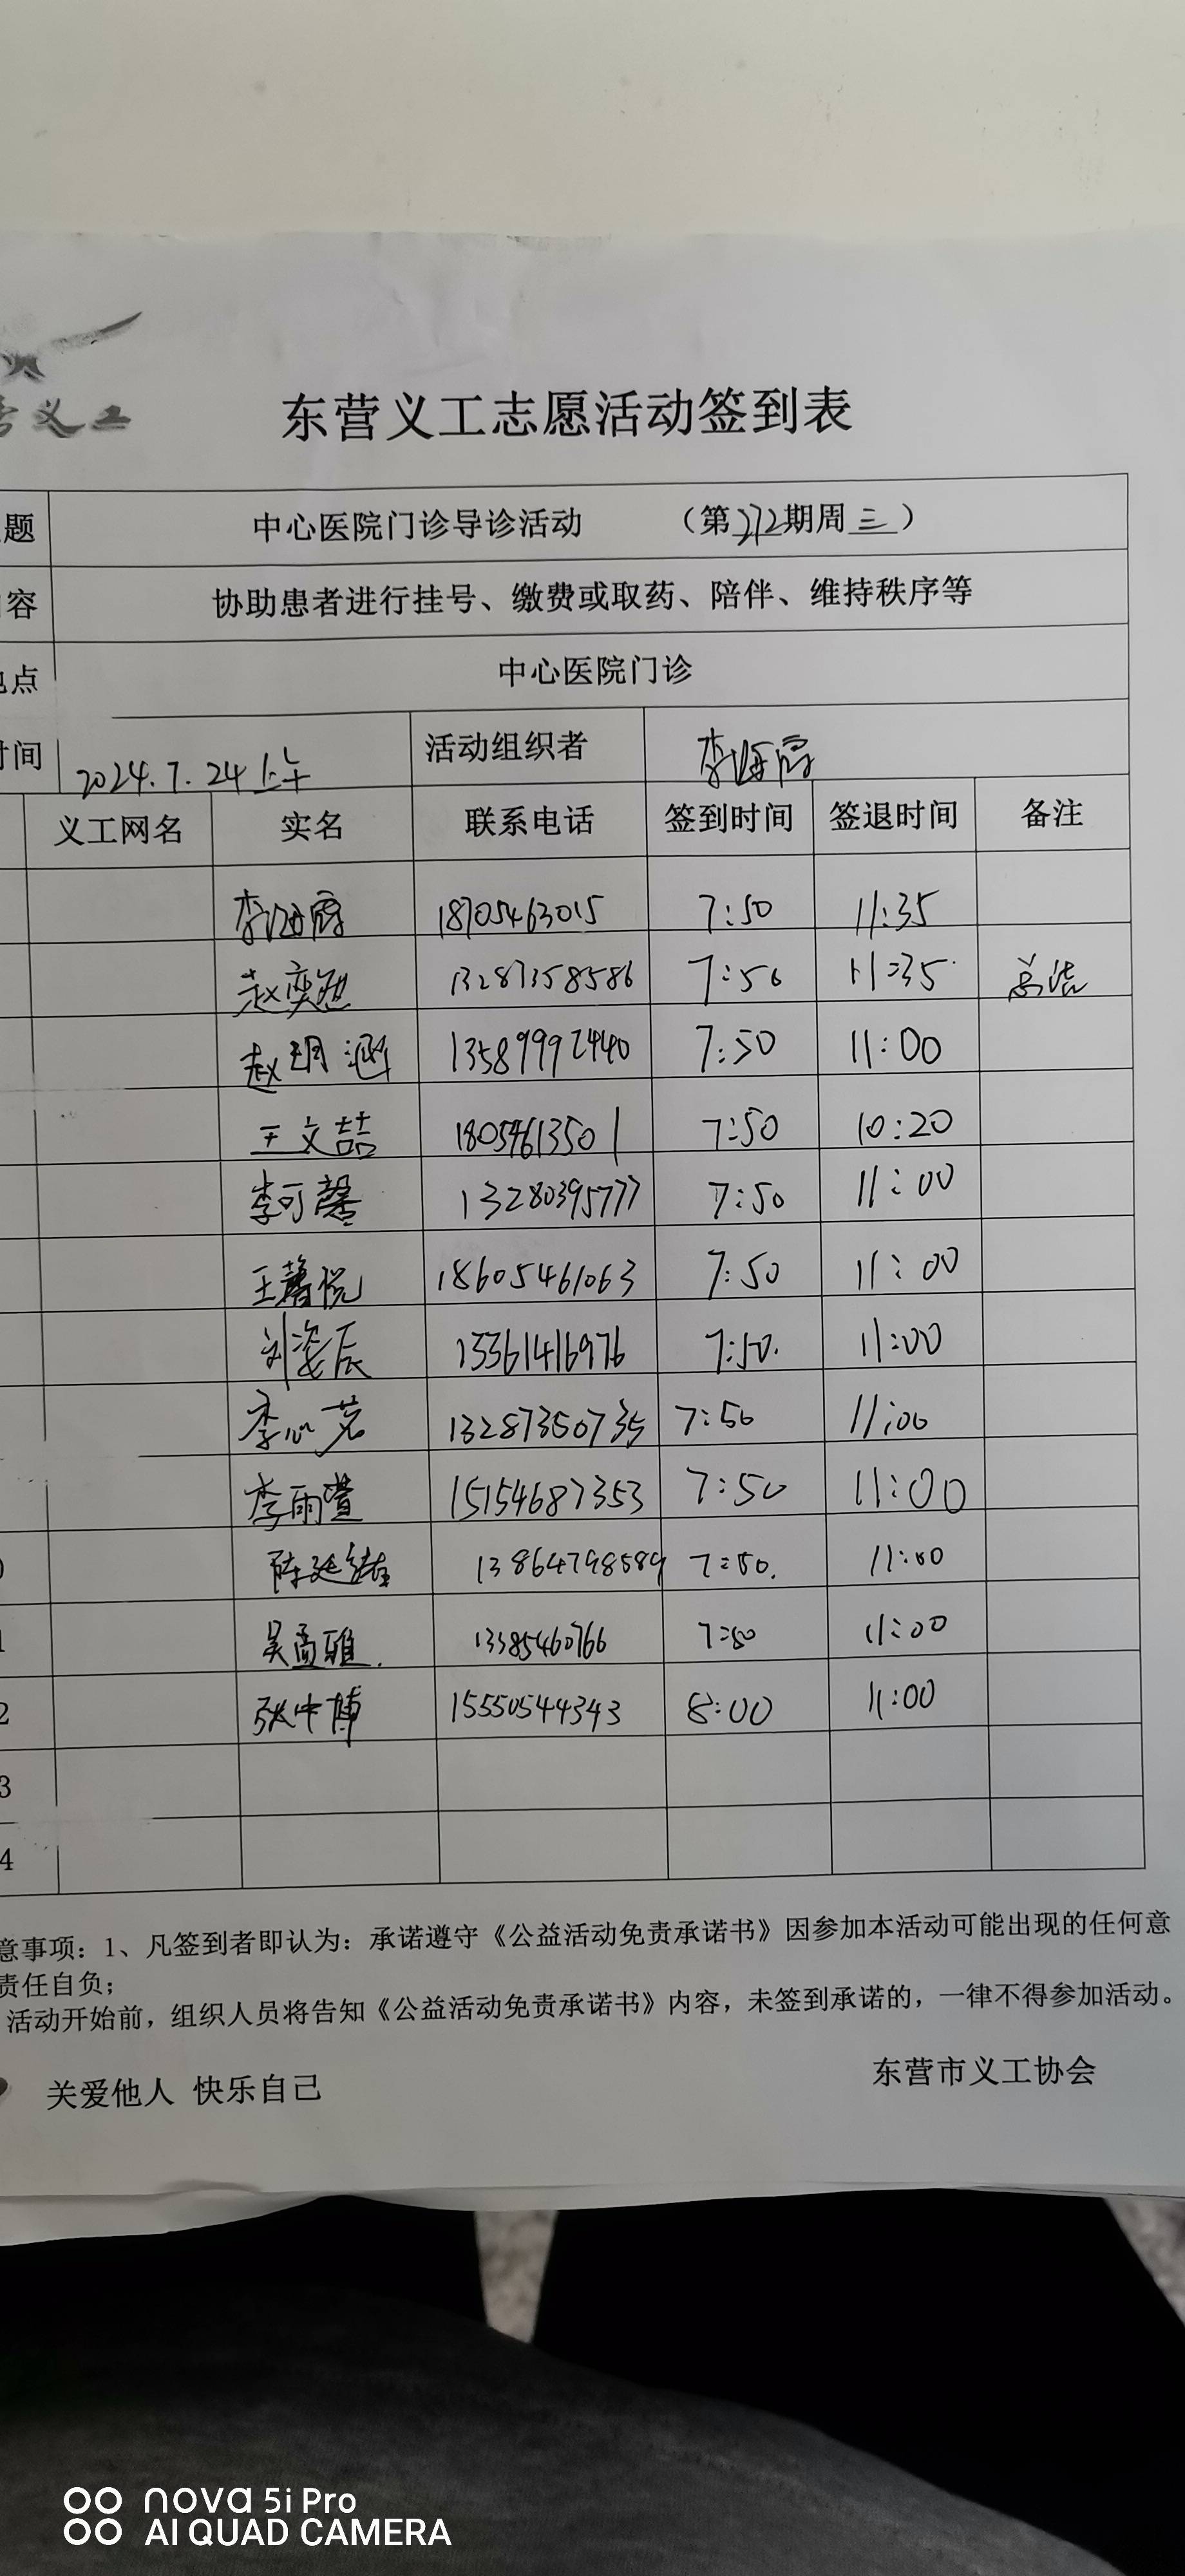 义工
东营义工志愿活动签到表
题 中心医院门诊导诊活动 （第272期周三）
容 协助患者进行挂号、缴费或取药、陪伴、维持秩序等
点 中心医院门诊
时间 2024.7.24上午 活动组织者 李海霞
义工网名 实名 联系电话 签到时间 签退时间 备注
李海霞 18705463015 7:50 11:35
赵奕 13287358586 7:50 11:35 总结
赵玥涵 13589992440 7:50 11:00
王文喆 18054613501 7:50 10:20
李可馨 13280395777 7:50 11:00
王馨悦 18605461063 7:50 11:00
刘姿辰 13361416976 7:50. 11:00
李心茗 13287350735 7:50 11:00
李雨萱 15154687353 7:50 11:00
陈廷绪 13864798589 7:50. 11:00
1 吴孟雅. 13385460766 7:50 11:00
2 张中博 15550544343 8:00 11:00
3
4
意事项：1、凡签到者即认为：承诺遵守《公益活动免责承诺书》因参加本活动可能出现的任何意
责任自负；
活动开始前，组织人员将告知《公益活动免责承诺书》内容，未签到承诺的，一律不得参加活动。
关爱他人 快乐自己 东营市义工协会
nova 5i Pro
AI QUAD CAMERA